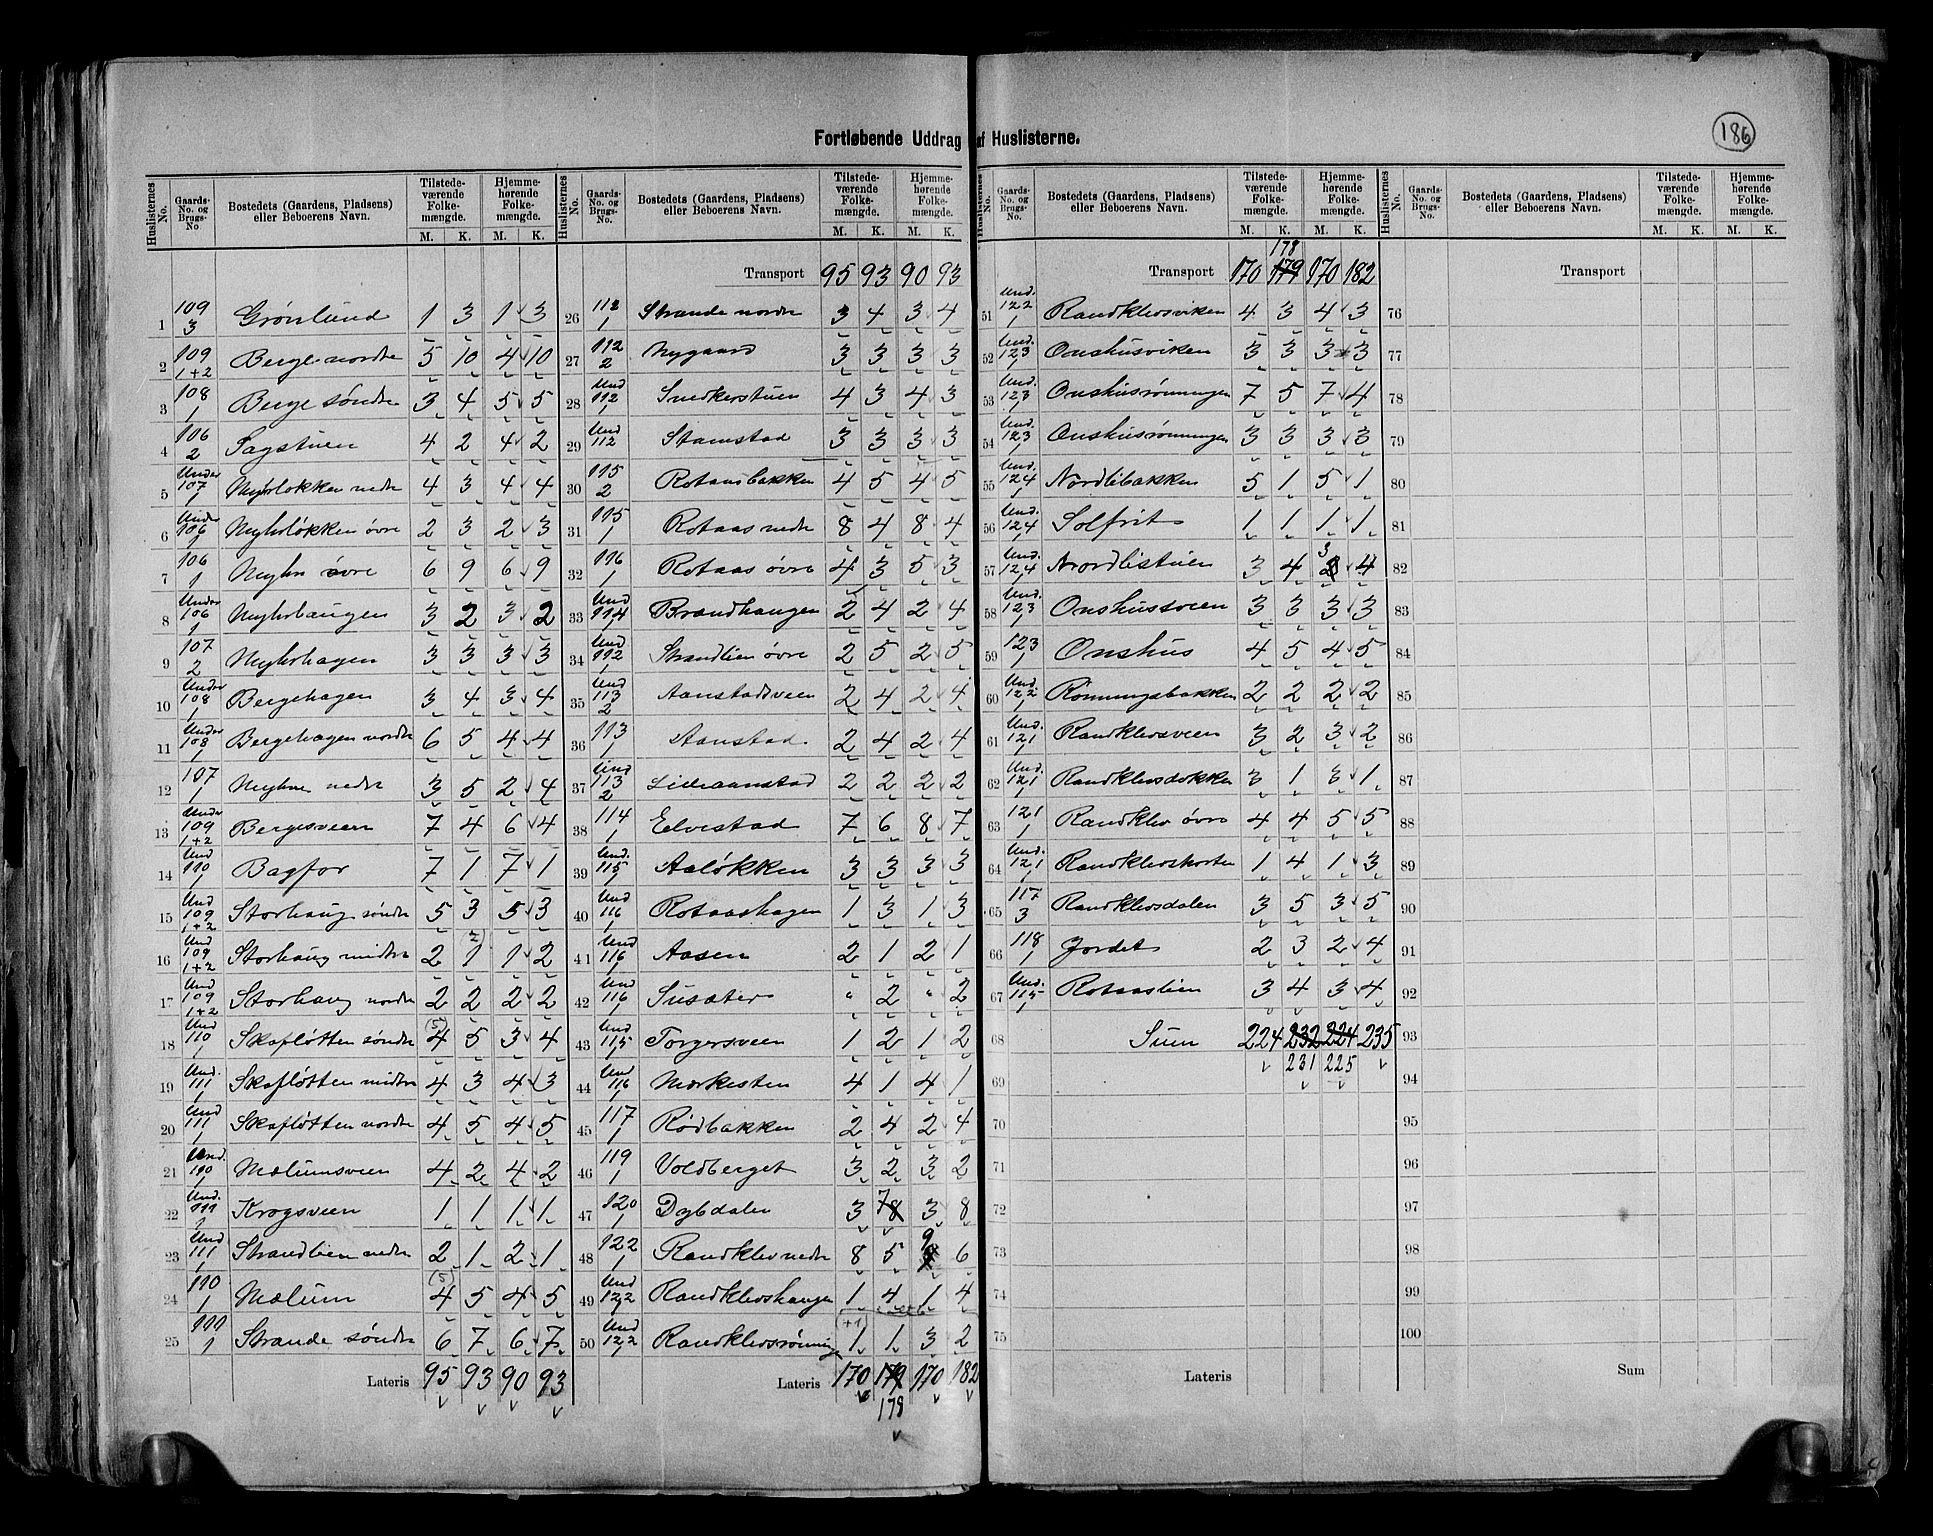 186
Fortløbende Uddrag af Huslisterne.
Huslisternes No. | Gaards-No. og Brugs-No. | Bostedets (Gaardens, Pladsens) eller Beboerens Navn. | Tilstedeværende Folkemængde. M. K. | Hjemmehørende Folkemængde. M. K.
1 109/3 Grønlund 1 3 1 3
2 109/1+2 Berge nordre 5 10 4 10
3 108/1 Berge søndre 3 4 5 5
4 106/2 Sagstuen 4 2 4 2
5 Under 107/1 Myhrløkken nedre 4 3 4 4
6 Under 106/1 Myhrløkken øvre 2 3 2 3
7 106/1 Myhre øvre 6 9 6 9
8 Under 106/1 Myhrhaugen 3 2 3 2
9 107/2 Myhrhagen 3 3 3 3
10 Under 108/1 Bergehagen 3 4 3 4
11 Under 108/1 Bergehagen nordre 6 5 4 4
12 107/1 Myhre nedre 3 5 2 4
13 Under 109/1+2 Bergesveen 7 4 6 4
14 Und 110/1 Bagfor 7 1 7 1
15 Und 109/1+2 Storhaug søndre 5 3 5 3
16 Und 109/1+2 Storhaug midtre 2 (2) 1 1 2
17 Und 109/1+2 Storhaug nordre 2 2 2 2
18 Und 110/1 Skafløtten søndre (5) 4 5 3 4
19 Und. 111/1 Skafløtten midtre 4 3 4 3
20 Und 111/1 Skafløtten nordre 4 5 4 5
21 Und. 110/1 Mælumsveen 4 2 4 2
22 Und. 111/1 Krogsveen 1 1 1 1
23 Und 111/1 Strandlien nedre 2 1 2 1
24 110/1 Mælum (5) 4 5 4 5
25 111/1 Strande søndre 6 7 6 7
Lateris 95 93 90 93
Huslisternes No. | Gaards-No. og Brugs-No. | Bostedets (Gaardens, Pladsens) eller Beboerens Navn. | Tilstedeværende Folkemængde. M. K. | Hjemmehørende Folkemængde. M. K.
Transport 95 93 90 93
26 112/1 Strande nordre 3 4 3 4
27 112/2 Nygaard 3 3 3 3
28 Und 112/1 Snedkerstuen 4 3 4 3
29 Und 112 Stamstad 3 3 3 3
30 115/2 Rotaasbakken 4 5 4 5
31 115/1 Rotaas nedre 8 4 8 4
32 116/1 Rotaas øvre 4 3 5 3
33 Und 114/1 Brandhaugen 2 4 2 4
34 Und 112/1 Strandlien øvre 2 5 2 5
35 Und 113/2 Aanstadsveen 2 4 2 4
36 113/1 Aanstad 2 4 2 4
37 Und 113/2 Lilleaanstad 2 2 2 2
38 114/1 Eelvestad 7 6 8 7
39 Und. 115/1 Aaløkken 3 3 3 3
40 Und 116/1 Rotaashagen 1 3 1 3
41 Und 116/1 Aasen 2 1 2 1
42 Und 116/1 Susæter " 2 " 2
43 Und 115/1 Torgersveen 1 2 1 2
44 Und 116/1 Morkesten 4 1 4 1
45 117/1 Rødbakken 2 4 2 4
46 119/1 Voldberget 3 2 3 2
47 120/1 Dybdalen 3 7 8 3 8
48 122/1 Randklev nedre 8 5 9 6
49 Und 122/1 Randklevshaugen 1 4 1 4
50 Und 122/1 Randklevsrønningen (+1) 1 1 3 2
Lateris 170 179 170 182
178
Huslisternes No. | Gaards-No. og Brugs-No. | Bostedets (Gaardens, Pladsens) eller Beboerens Navn. | Tilstedeværende Folkemængde. M. K. | Hjemmehørende Folkemængde. M. K.
178
Transport 170 179 170 182
51 Und. 122/1 Randklevsviken 4 3 4 3
52 Und. 123/1 Onshusviken 3 3 3 3
53 Und. 123/1 Onshusrønningen 7 5 7 4
54 Und. 123 Onshusrønningen 3 3 3 3
55 Und. 124/1 Nordlibakken 5 1 5 1
56 Und. 124/1 Solfrit 1 1 1 1
57 Und. 124/1 Nordlistuen 3 4 3 2 4
58 Und. 123/1 Onshusveen 3 3 3 3
59 123/1 Onshus 4 5 4 5
60 Und. 122/1 Rønningsbakken 2 2 2 2
61 Und. 121/1 Randklevsveen 3 2 3 2
62 Und. 121/1 Randklevsdokken 3 1 3 1
63 121/1 Randklev øvre 4 4 5 5
64 Und. 121/1 Randklevskorten 1 4 1 3
65 117/3 Randklevsdalen 3 5 3 5
66 118/1 Jordet 2 3 2 4
67 Und. 115/1 Rotaaslien 3 4 3 4
68 Sum 224 232 224 235
69 231 225
70
71
72
73
74
75
Lateris
Huslisternes No. | Gaards-No. og Brugs-No. | Bostedets (Gaardens, Pladsens) eller Beboerens Navn. | Tilstedeværende Folkemængde. M. K. | Hjemmehørende Folkemængde. M. K.
Transport
76
77
78
79
80
81
82
83
84
85
86
87
88
89
90
91
92
93
94
95
96
97
98
99
100
Sum